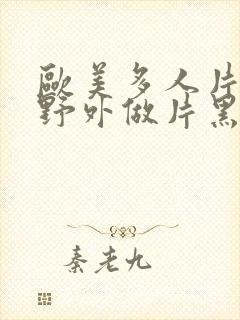 歐美多人片
野外做片黑
秦老九